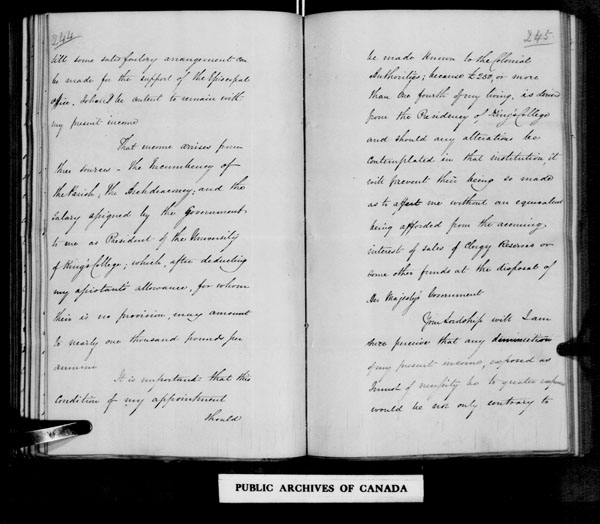 244
till some satisfactory arrangement can
be made for the support of the Episcopal
Office, I shall be content to remain with
my present income
That income arises from
three sources - The Incumbency of
the Parish; the Archdeaconry; and the
salary assigned by the Government
to me as President of the University
of King's College; which, after deducting
my assistant's allowance, for whom
there is no provision, may amount
to nearly one thousand pounds per
annum
It is important that this
condition of my appointment
should
245
be made known to the Colonial
Authorities; because £250, or more
than one fourth of my living, is derived
from the Presidency of King's College
and should any alterations be
contemplated in that institution, it
will prevent their being so made
as to affect me without an equivalent
being afforded from the accruing
interest of sales of Clergy Reserves or
some other funds at the disposal of
His Majesty's Government
Your Lordship will I am
sure perceive that any diminution
of my present income, exposed as
I must of necessity be to greater expense
would be not only contrary to
PUBLIC ARCHIVES OF CANADA